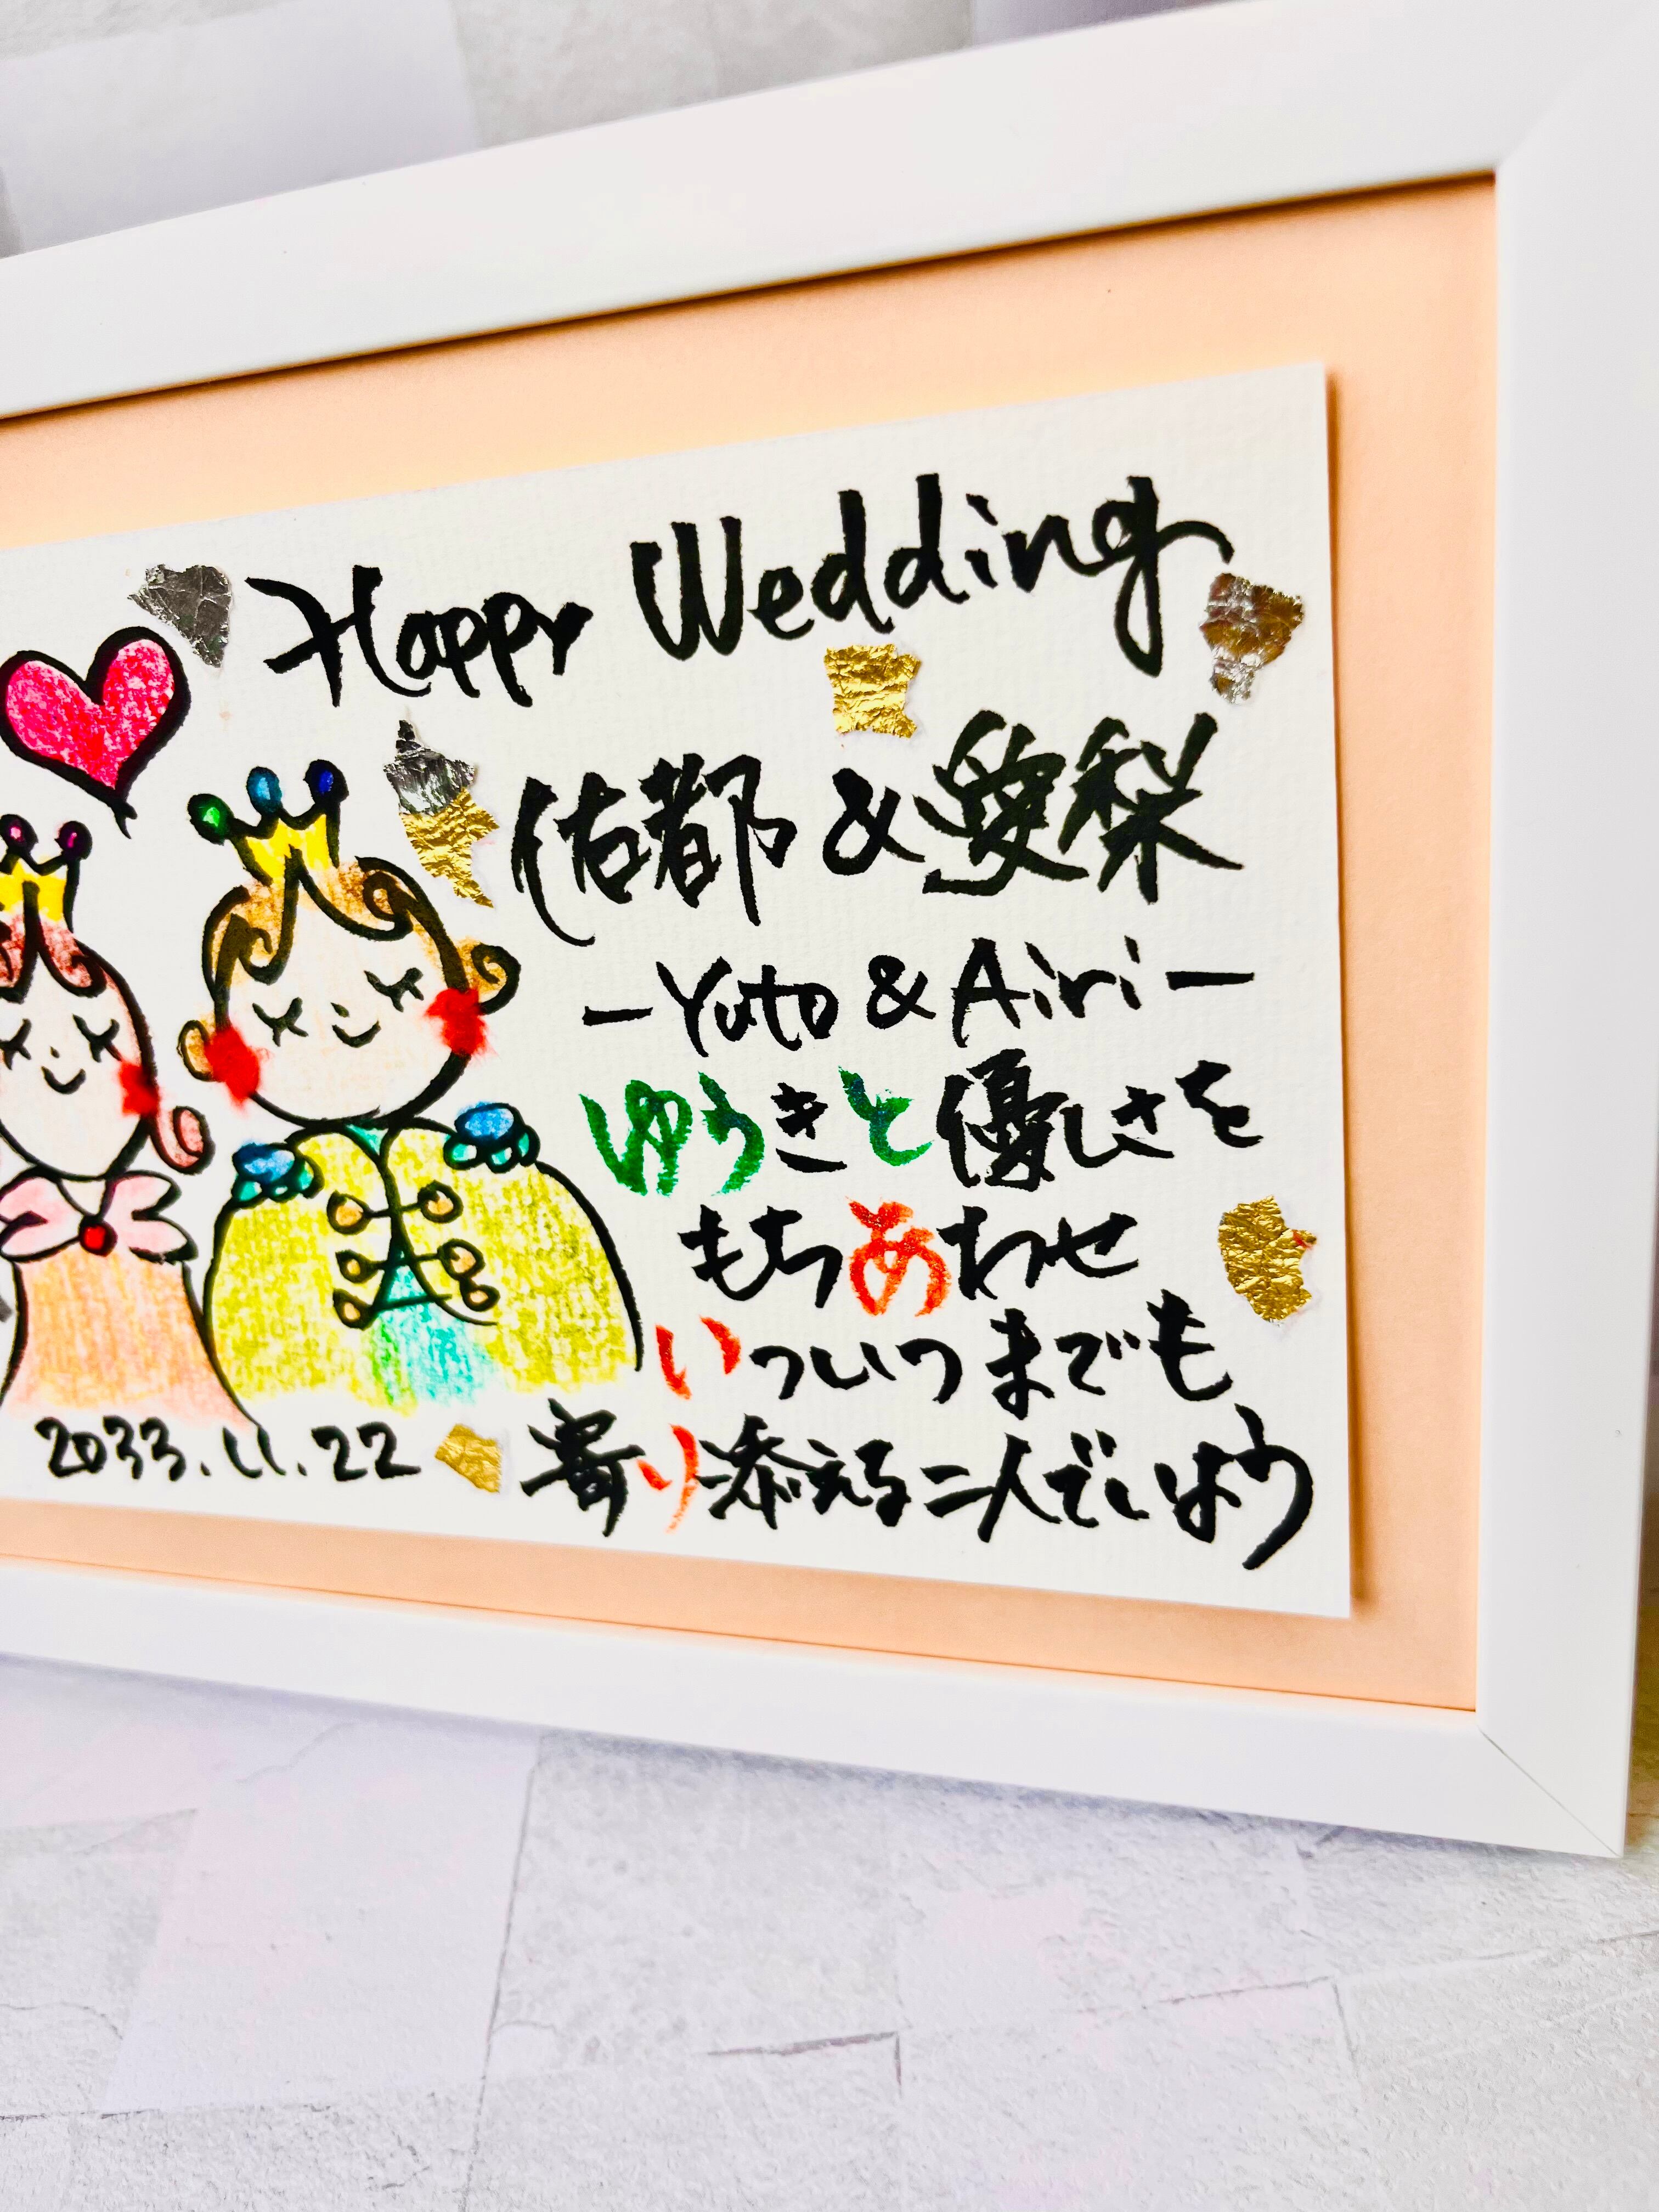 Happy Wedding
佑都&愛梨
-Yuto & Airi-
ゆうきと優しさを
もちあわせ
いついつまでも
寄り添える二人でいよう
2033.11.22